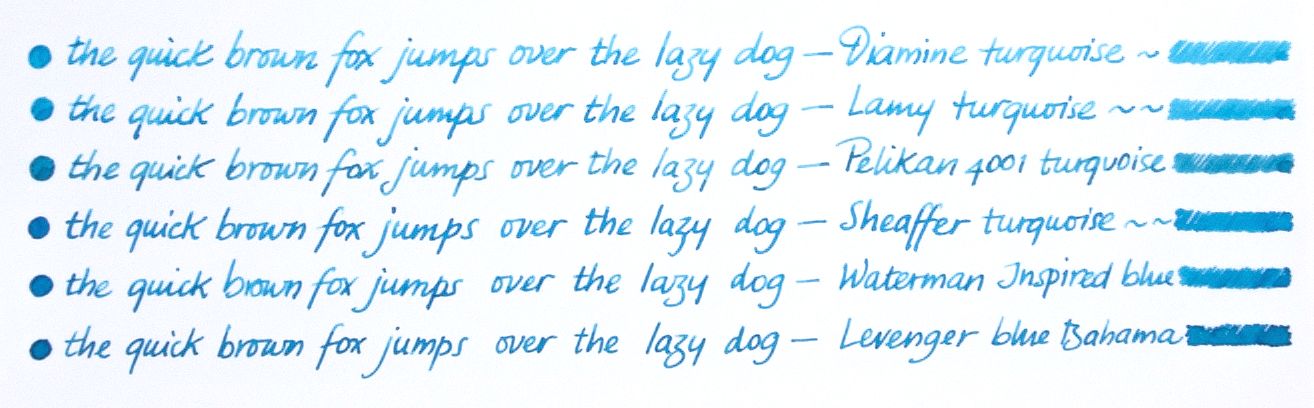 the quick brown fox jumps over the lazy dog — Diamine turquoise ~
the quick brown fox jumps over the lazy dog — Lamy turquoise ~~
the quick brown fox jumps over the lazy dog — Pelikan 4001 turquoise
the quick brown fox jumps over the lazy dog — Sheaffer turquoise ~~
the quick brown fox jumps over the lazy dog — Waterman Inspired blue
the quick brown fox jumps over the lazy dog — Levenger blue Bahama